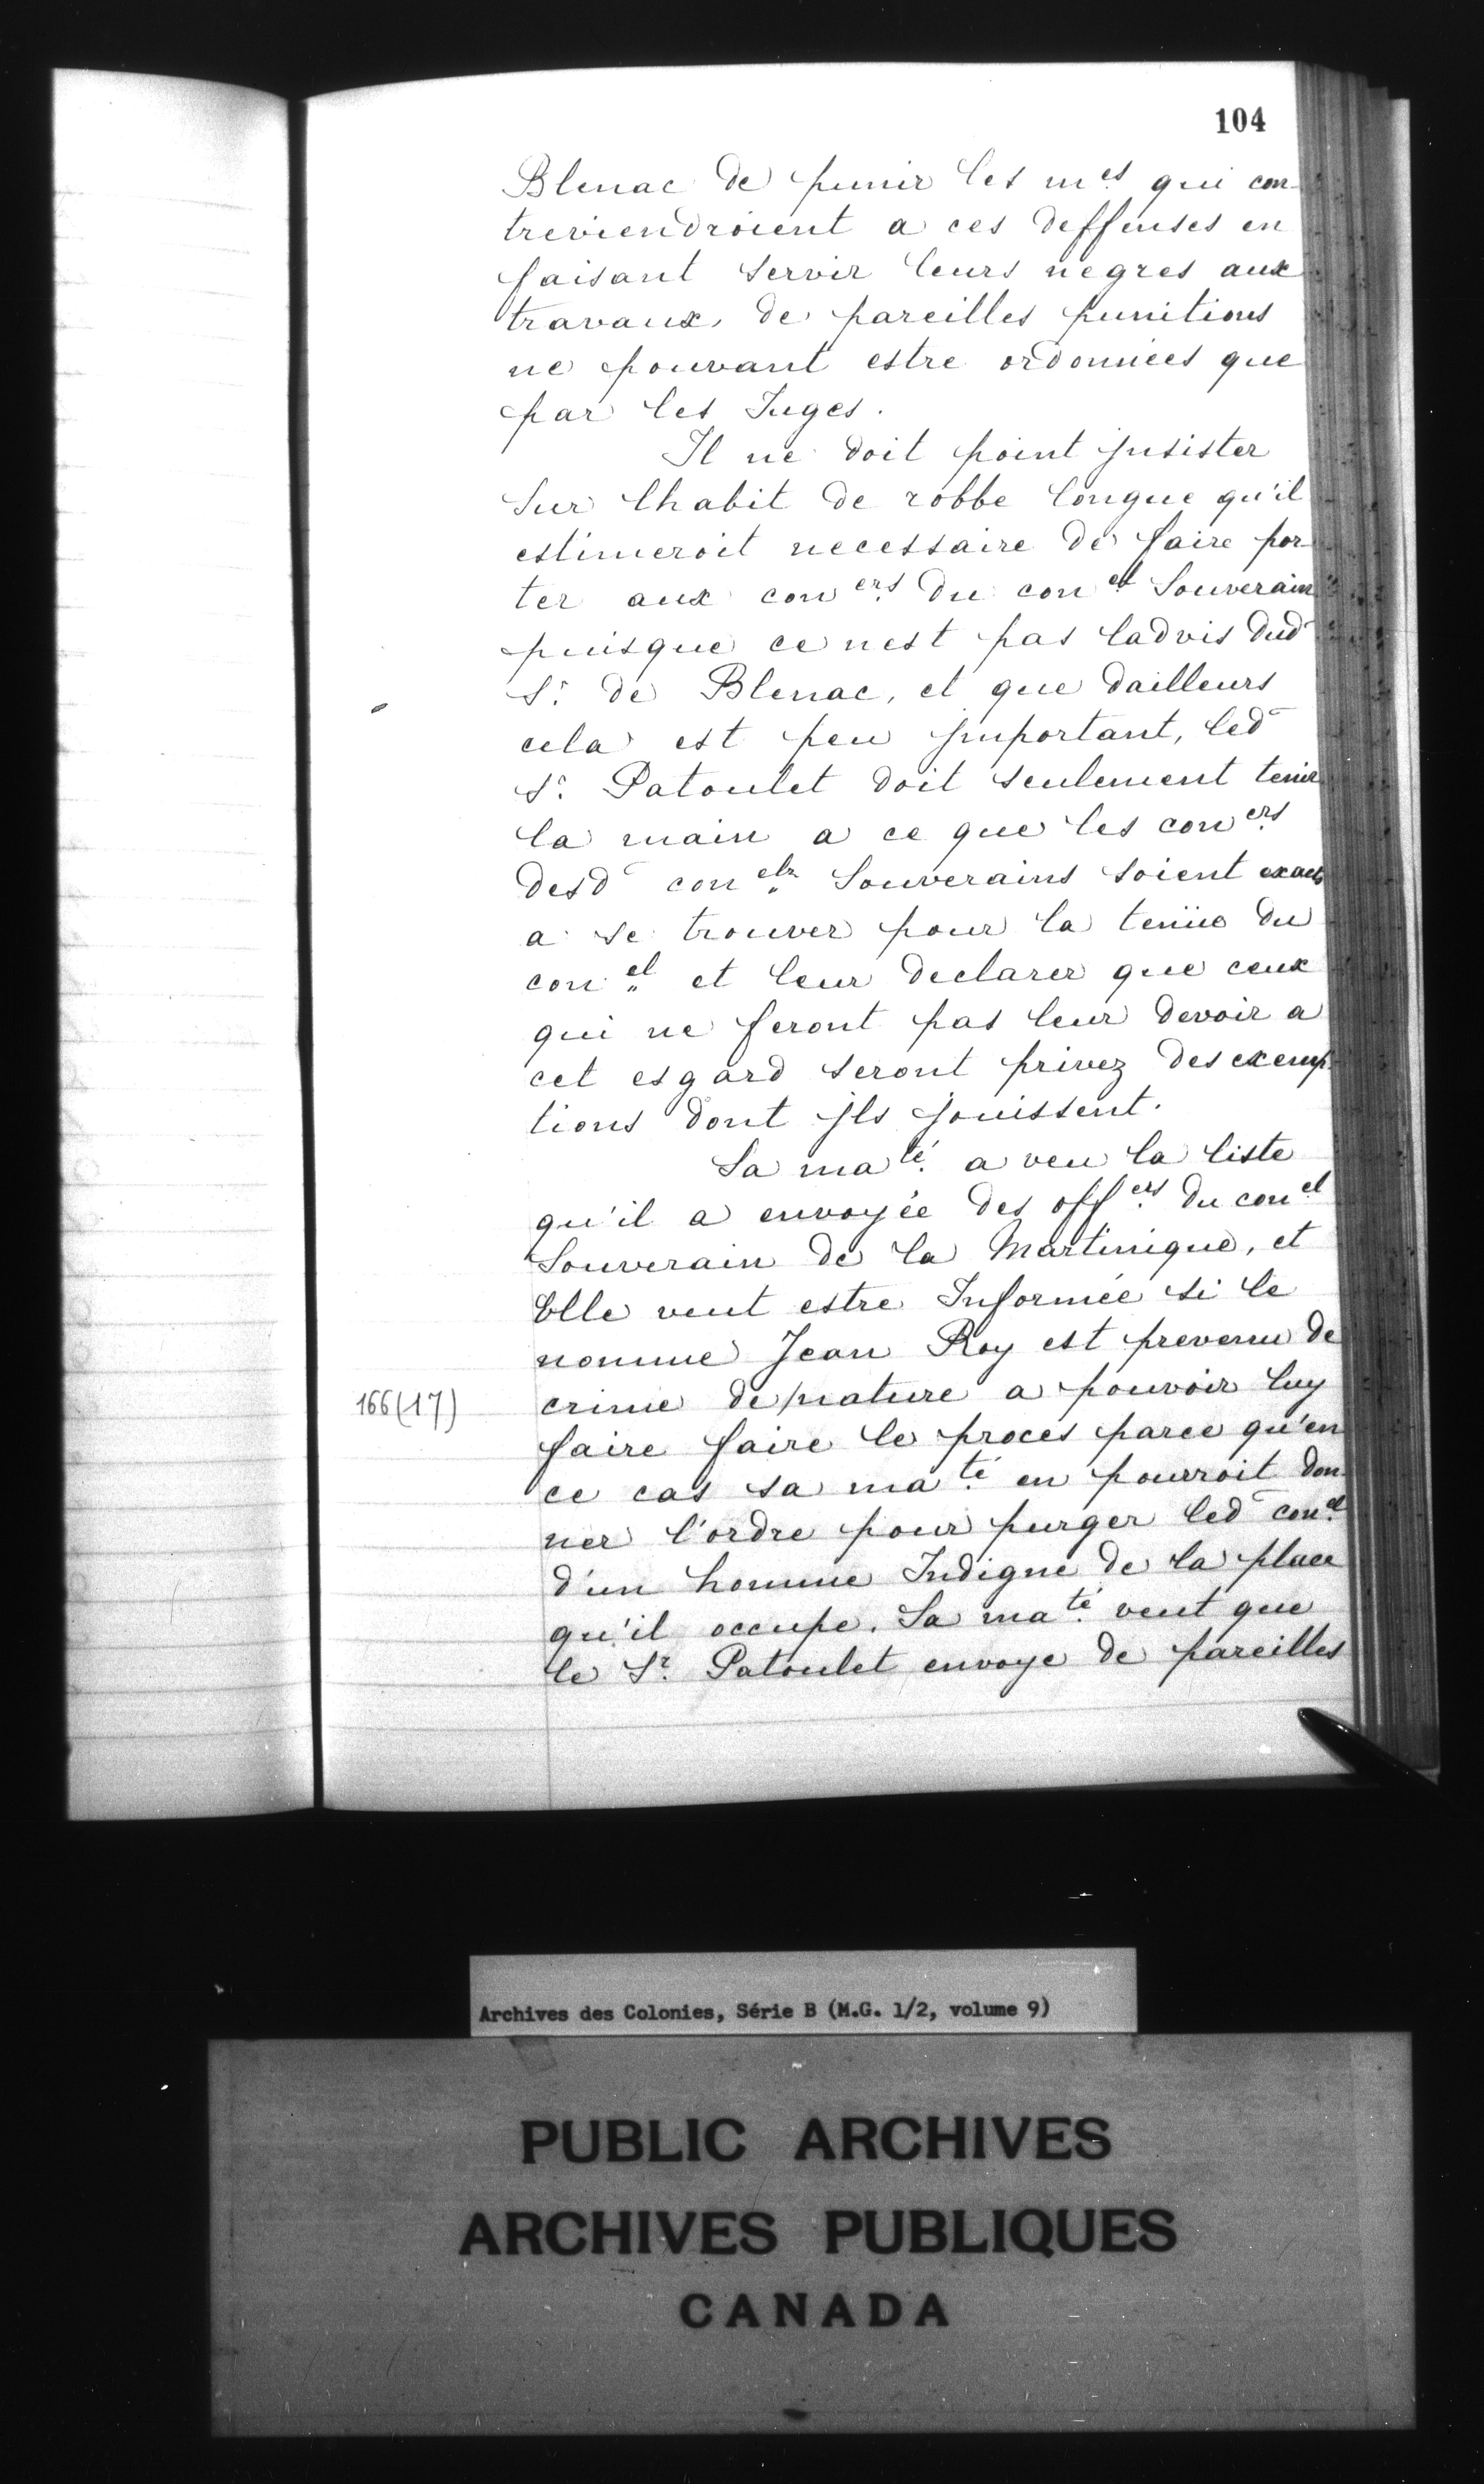 104
Blenac de punir les mes qui con
treviendroient a ces deffenses en
faisant servir leurs negres aux
travaux, de pareilles punitions
ne pouvant estre ordonnées que
par les Juges.
Il ne doit point jnsister
sur lhabit de robbe longue qu'il
estimeroit necessaire de faire por
ter aux con ers du con el Souverain
puisque ce nest pas ladvis dud
Sr. de Blenac, et que dailleurs
cela est peu jmportant, led
Sr. Patoulet doit seulement tenir
la main a ce que les con ers
desd con elz Souverains soient exacts
a se trouver pour la tenüe du
con el et leur declarer que ceux
qui ne feront pas leur devoir a
cet esgard seront privez des exemp-
tions dont jls jouissent.
Sa ma té a veu la liste
qu'il a envoyée des off ers du con el
Souverain de la Martinique, et
Elle veut estre Informée si le
nommé Jean Roy est prevenu de
166(17)
crime de/nature a pouvoir luy
faire faire le proces parce qu'en
ce cas sa ma té en pourroit don
ner l'ordre pour purger led con el
d'un homme Indigne de la place
qu'il occupe. Sa ma té veut que
le Sr. Patoulet envoye de pareilles
Archives des Colonies, Série B (M.G. 1/2, volume 9)
PUBLIC ARCHIVES
ARCHIVES PUBLIQUES
CANADA